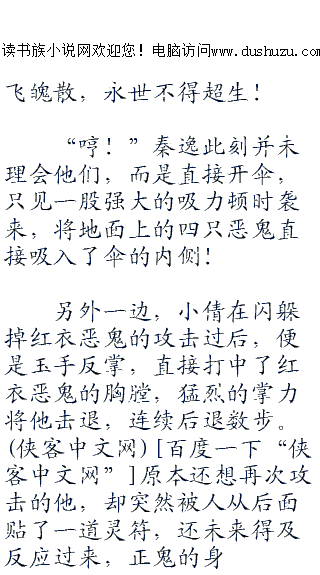 读书族小说网欢迎您！电脑访问www.dushuzu.com
飞魄散，永世不得超生！
“哼！”秦逸此刻并未
理会他们，而是直接开伞，
只见一股强大的吸力顿时袭
来，将地面上的四只恶鬼直
接吸入了伞的内侧！
另外一边，小倩在闪躲
掉红衣恶鬼的攻击过后，便
是玉手反掌，直接打中了红
衣恶鬼的胸膛，猛烈的掌力
将他击退，连续后退数步。
(侠客中文网)[百度一下“侠
客中文网”]原本还想再次攻
击的他，却突然被人从后面
贴了一道灵符，还未来得及
反应过来，正鬼的身